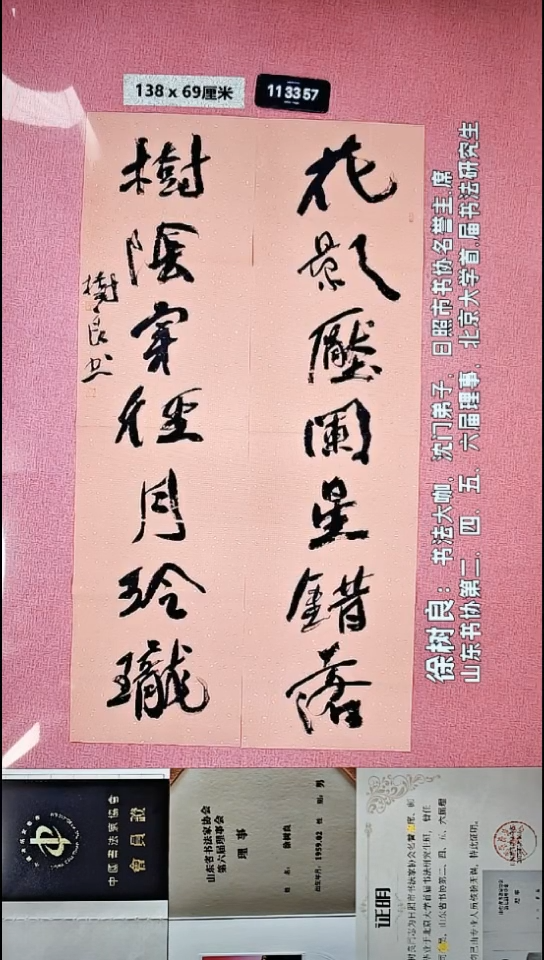 138 x 69厘米
113357
花影壓闌星錯落
樹陰穿徑月玲瓏
樹良书
徐树良：书法大咖，沈门弟子，日照市书协名誉主席
山东书协第二、四、五、六届理事，北京大学首届书法研究生
中國書法家協會
會員證
山东省书法家协会
第六届理事会
理事
姓名：徐树良
性别：男
出生年月：1959.02
证明